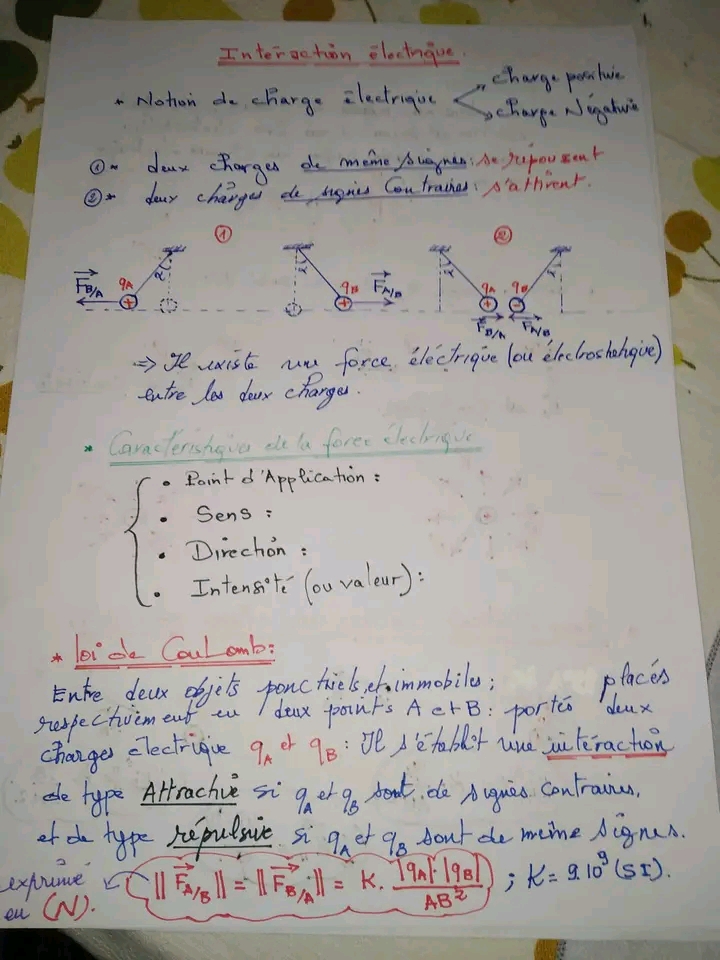 Interaction électrique.
* Notion de charge électrique
charge positive
charge Négative
①* deux charges de même signes: se repoussent
②* deux charges de signes Contraires: s'attirent.
① ②
α α α α
F B/A qA + qB + F A/B qA + qB -
F B/A F A/B
⇒ Il existe une force éléctrique (ou électrostatique)
entre les deux charges.
* Caractéristiques de la force électrique
• Point d'Application :
• Sens :
• Direction :
• Intensité (ou valeur) :
* loi de Coulomb:
Entre deux objets ponctuels et immobiles; placés
respectivement en deux points A et B: portés deux
charges électrique qA et qB : Il s'établit une intéraction
de type Attractive si qA et qB sont de signes contraires,
et de type répulsive si qA et qB sont de même signes.
exprimé
en (N).
||F A/B|| = ||F B/A|| = K. |qA|.|qB| / AB² ; K = 9.10⁹ (SI).